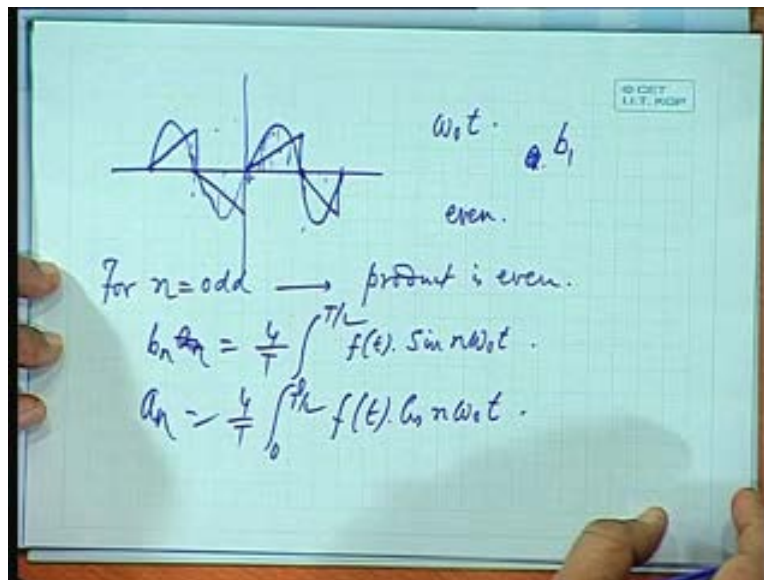 © CET
I.I.T. KGP
ω₀t.
b₁
even.
For n=odd → product is even.
bₙ = 4/T ∫₀^T/2 f(t). Sin nω₀t.
aₙ = 4/T ∫₀^T/2 f(t). Cos nω₀t.